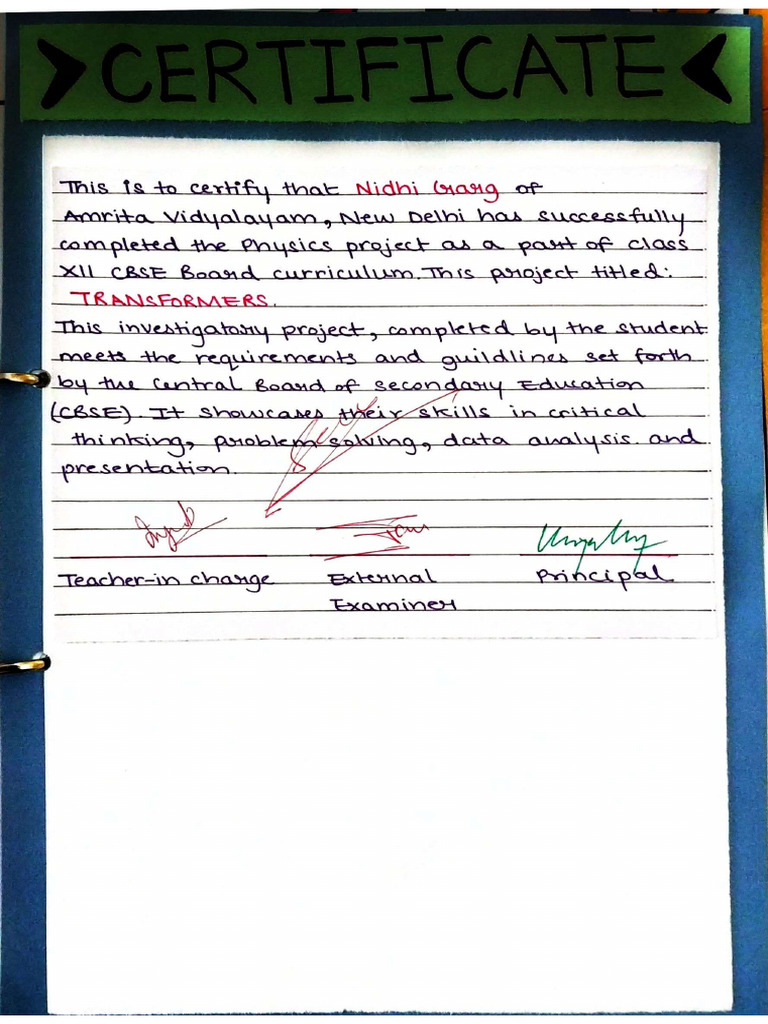 CERTIFICATE
This is to certify that Nidhi Garg of
Amrita Vidyalayam, New Delhi has successfully
completed the Physics project as a part of class
XII CBSE Board curriculum. This project titled:
TRANSFORMERS.
This investigatory project, completed by the student
meets the requirements and guildlines set forth
by the Central Board of Secondary Education
(CBSE). It showcases their skills in critical
thinking, problem solving, data analysis and
presentation.
Teacher-in charge External Principal
Examiner